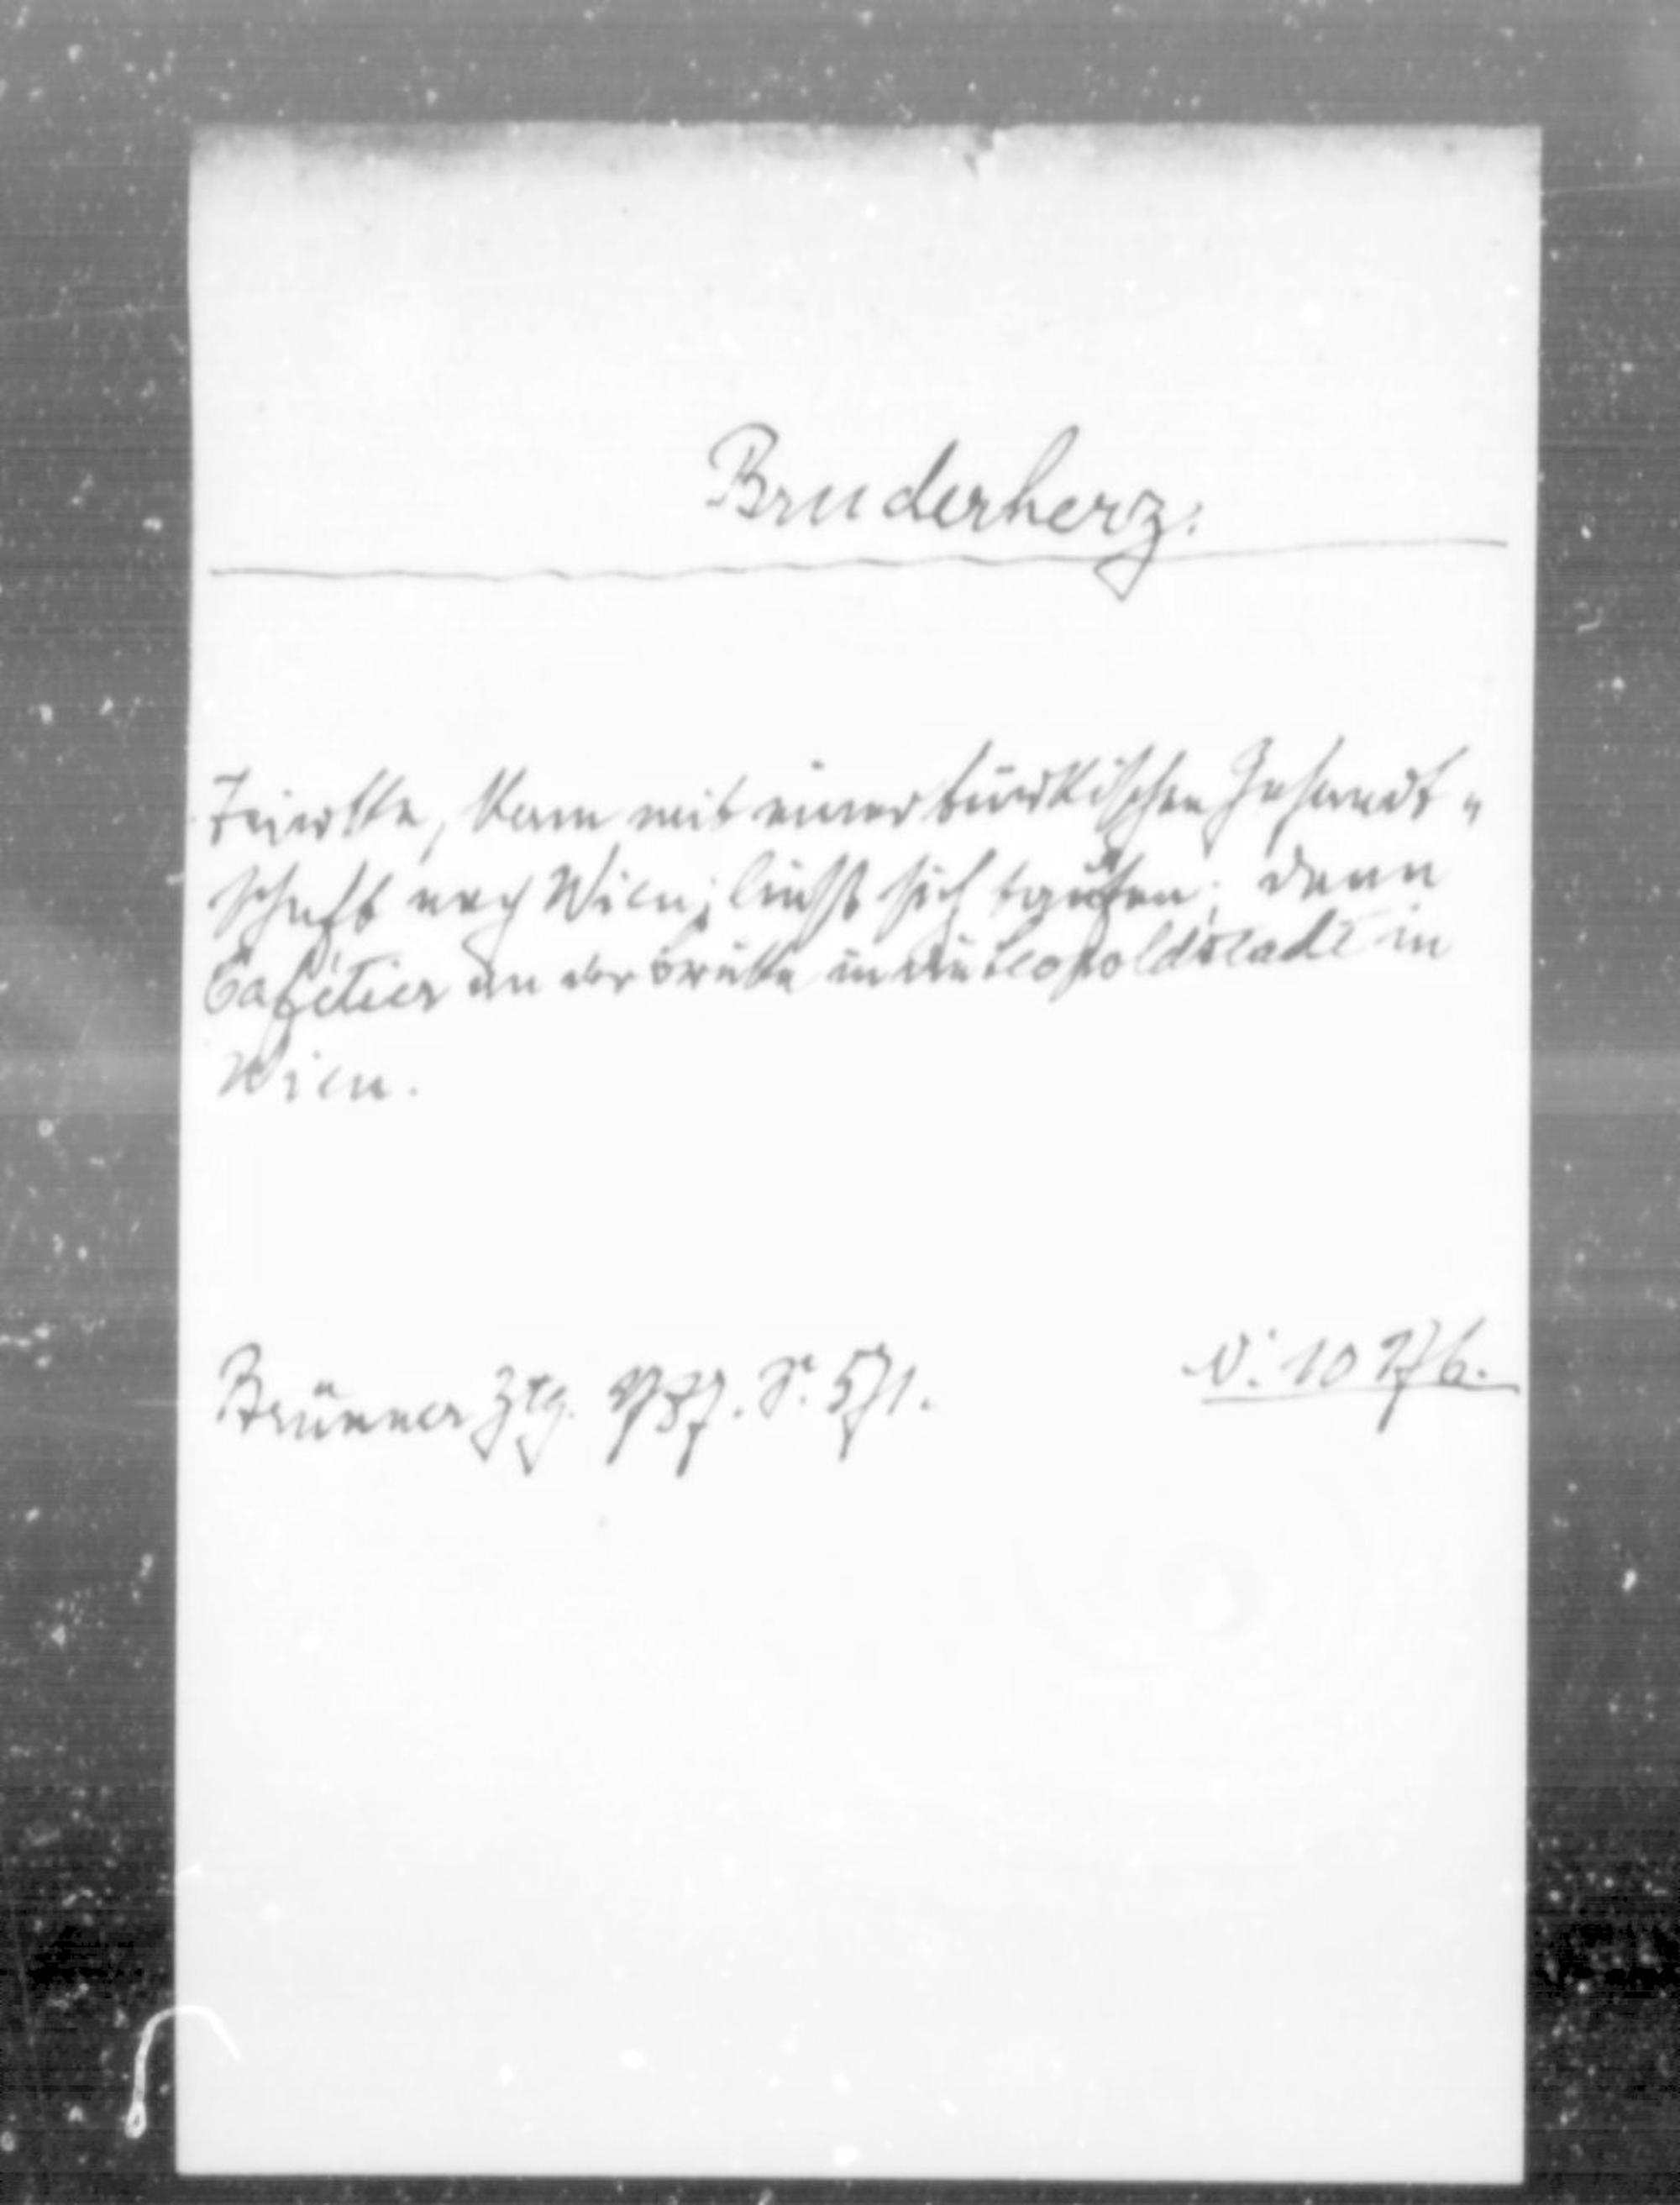 Bruderherz.
Kam mit einer türkischen Gesandt-
schaft nach Wien; ließ sich taufen; dann
Cafétier an der Brücke in die Leopoldstadt in
Wien.
Brünner Ztg. 1787. S. 571. V. 10276.